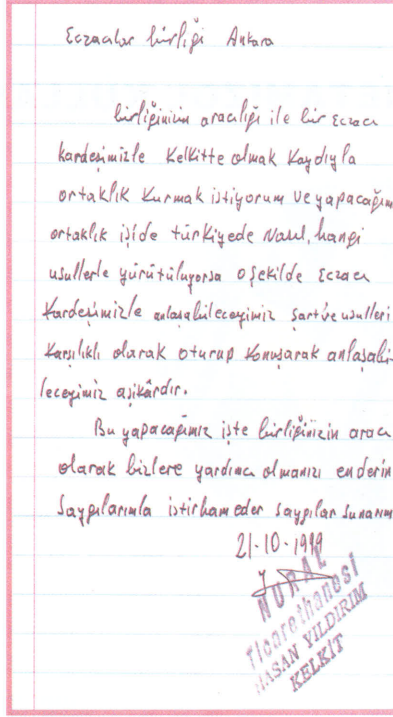 Eczacılar birliği Ankara
birliğinizin aracılığı ile bir Eczacı
kardeşimizle Kelkitte olmak Kaydıyla
ortaklık Kurmak istiyorum ve yapacağım
ortaklık işide türkiyede Nasıl, hangi
usullerle yürütülüyorsa oşekilde Eczacı
Kardeşimizle anlaşabileceğimiz şart ve usulleri
Karşılıklı olarak oturup Konuşarak anlaşabi-
leceğimiz aşikârdır.
Bu yapacağımız işte birliğinizin aracı
olarak bizlere yardımcı olmanızı enderin
Saygılarımla istirham eder saygılar sunarım
21-10-19
NURAL
Ticarethanesi
HASAN YILDIRIM
KELKİT